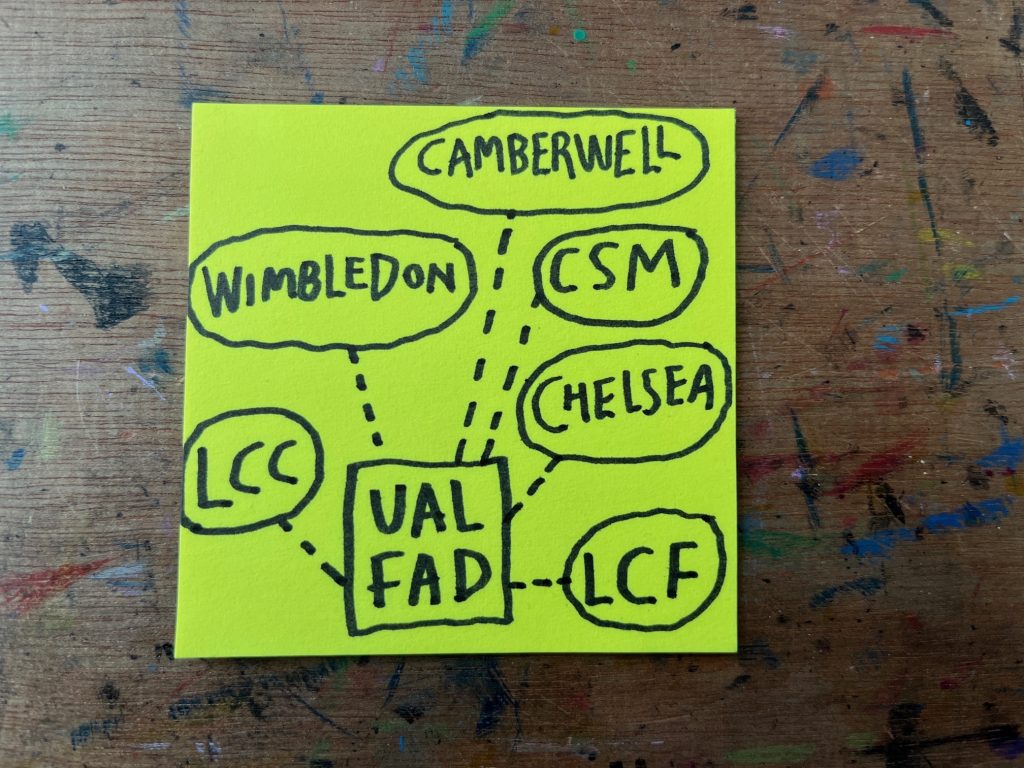 CAMBERWELL
WIMBLEDON
CSM
CHELSEA
LCC
UAL
FAD
LCF